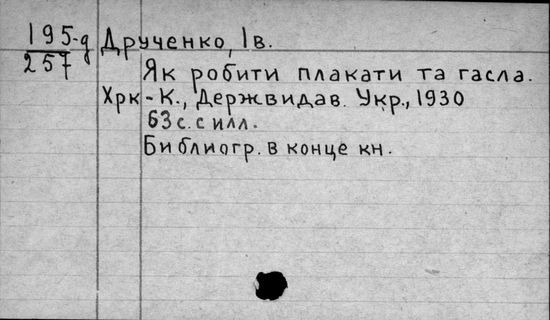 195-д
257
Друченко, Ів.
Як робити плакати та гасла.
Хрк-К., Держвидав. Укр., 1930
63 с. с илл.
Библиогр. в конце кн.